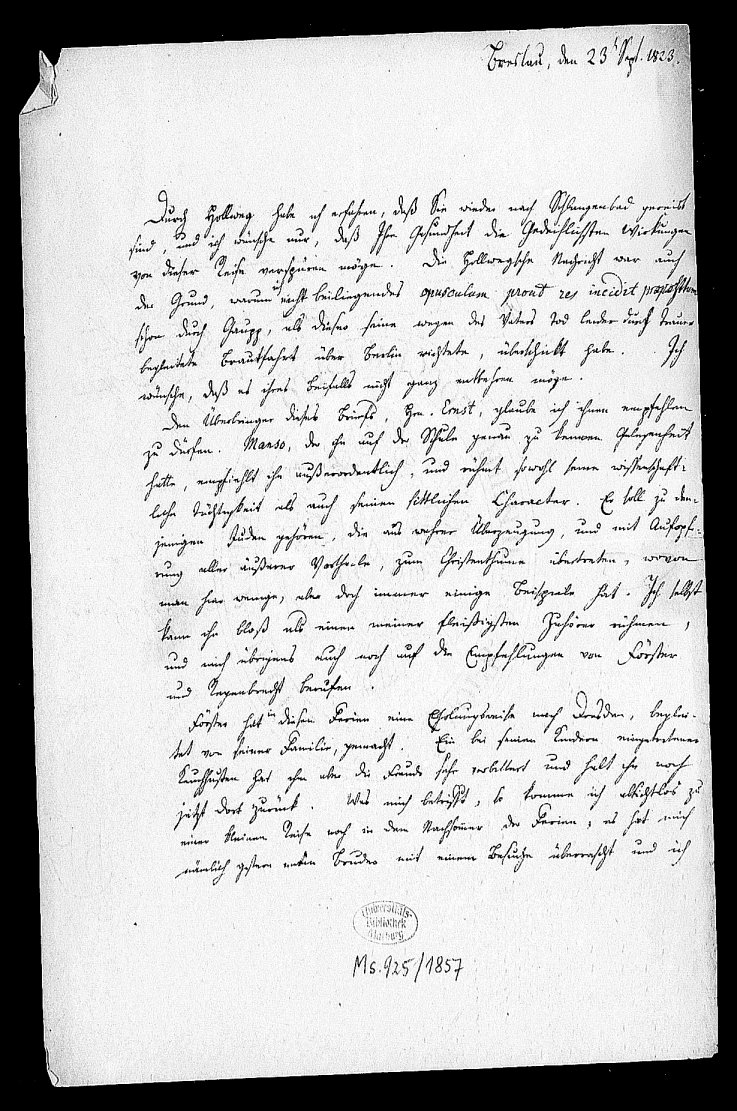 Breslau, den 23 Sept. 1823.
Durch Hollweg habe ich erfahren, daß Sie wieder nach Schlangenbad gereist
sind, und ich wünsche nur, daß Ihre Gesundheit die gedeihlichsten Wirkungen
von dieser Reise verspüren möge. Die Hollwegsche Nachricht war auch
der Grund, warum ich nicht beiliegendes opusculum prout res incidit
schon durch Gaupp, als dieser seine wegen des Vaters Tod leider durch Trauer
begleitete Brautfahrt über Berlin richtete, überschickt habe. Ich
wünsche, daß es ihres Beifalls nicht ganz entbehren möge.
Den Überbringer dieses Briefs, Hrn. Ernst, glaube ich ihnen empfehlen
zu dürfen. Manso, der ihn auf der Schule genau zu kennen Gelegenheit
hatte, empfiehlt ihn außerordentlich, und rühmt sowohl seine wissenschaft-
liche Tüchtigkeit als auch seinen sittlichen Character. Er soll zu den-
jenigen Juden gehören, die aus wahrer Überzeugung, und mit Aufopfe-
rung aller äußerer Vortheile, zum Christenthume übertreten, wovon
man hier wenige, aber doch immer einige Beispiele hat. Ich selbst
kann ihn bloß als einen meiner fleißigsten Zuhörer rühmen,
und mich übrigens auch noch auf die Empfehlungen von Förster
und Regenbrecht berufen.
Förster hat in diesen Ferien eine Erholungsreise nach Dresden, beglei-
tet von seiner Familie, gemacht. Ein bei seinen Kindern eingetretener
Keuchhusten hat ihm aber die Freude sehr verbittert und hält ihn noch
jetzt dort zurück. Was mich betrifft, so komme ich vielleicht zu
einer kleinen Reise noch in dem Nachsommer der Ferien; es hat mich
nämlich gestern mein Bruder mit einem Besuche überrascht und ich
Universitäts-
Bibliothek
Marburg
Ms. 925/1857